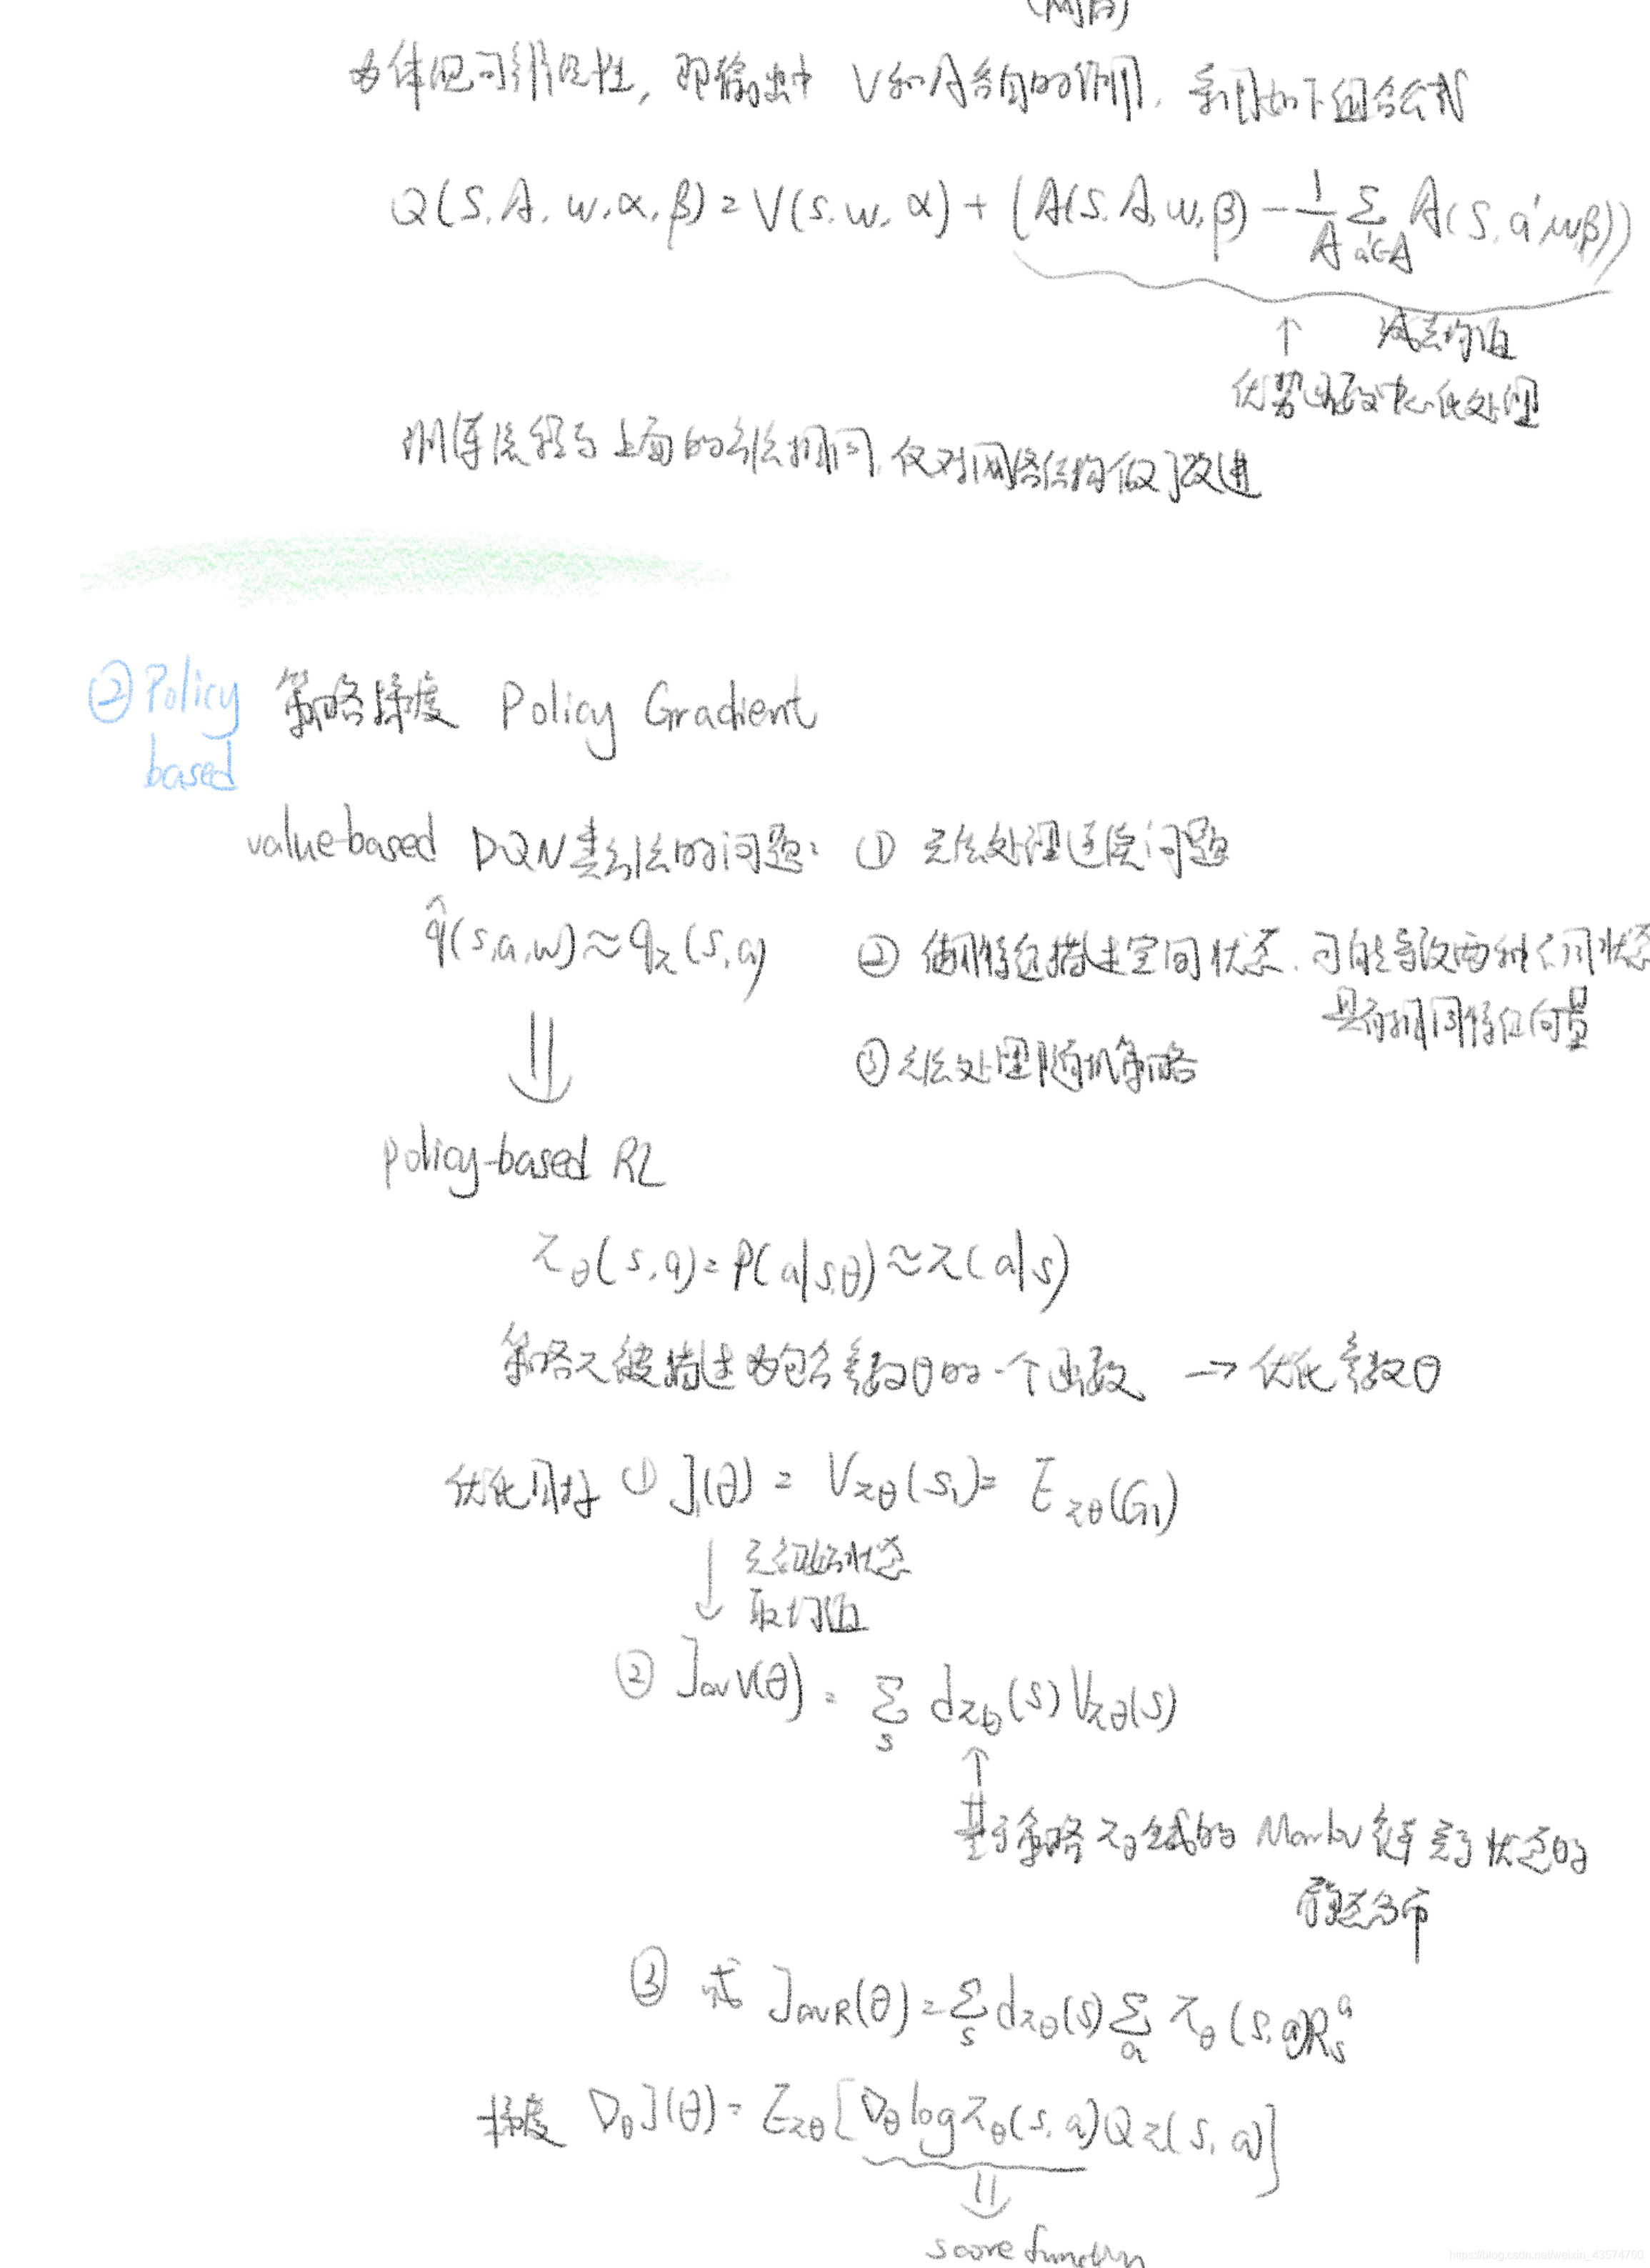 (网络)
为体现可辨识性，即输出中 V和A各自的作用，采用如下组合公式
Q(S,A,w,α,β)=V(s,w,α)+(A(S,A,w,β)-1/A Σ_{a'∈A} A(S,a',w,β))
↑ 减去均值
优势函数中心化处理
训练流程与上面的算法相同，仅对网络结构做了改进
② Policy based 策略梯度 Policy Gradient
value-based DQN类算法的问题： ① 无法处理连续问题
q̂(s,a,w)≈q_π(s,a) ② 使用特征描述空间状态，可能导致两种不同状态
具有相同特征向量
③ 无法处理随机策略
policy-based RL
π_θ(s,a)=P(a|s,θ)≈π(a|s)
策略π被描述为包含参数θ的一个函数 → 优化参数θ
优化目标 ① J(θ) = V_πθ(s₁)= E_πθ(G₁)
↓ 无初始状态
取均值
② J_avV(θ) = Σ_s d_πθ(s)V_πθ(s)
↑
基于策略π_θ生成的 Markov 链关于状态的
静态分布
③ 或 J_avR(θ)=Σ_s d_πθ(s) Σ_a π_θ(s,a)R_s^a
梯度 ∇_θ J(θ)= E_πθ[∇_θ log π_θ(s,a) Q_π(s,a)]
score function
https://blog.csdn.net/weixin_43674760